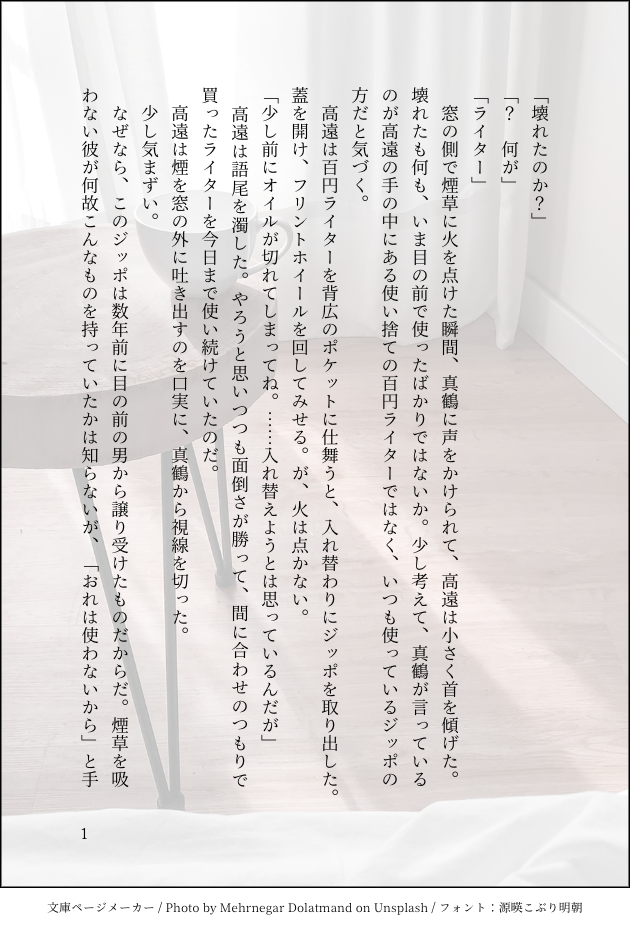 「壊れたのか？」
「？　何が」
「ライター」
　窓の側で煙草に火を点けた瞬間、真鶴に声をかけられて、高遠は小さく首を傾げた。
壊れたも何も、いま目の前で使ったばかりではないか。少し考えて、真鶴が言っている
のが高遠の手の中にある使い捨ての百円ライターではなく、いつも使っているジッポの
方だと気づく。
　高遠は百円ライターを背広のポケットに仕舞うと、入れ替わりにジッポを取り出した。
蓋を開け、フリントホイールを回してみせる。が、火は点かない。
「少し前にオイルが切れてしまってね。……入れ替えようとは思っているんだが」
　高遠は語尾を濁した。やろうと思いつつも面倒さが勝って、間に合わせのつもりで
買ったライターを今日まで使い続けていたのだ。
　高遠は煙を窓の外に吐き出すのを口実に、真鶴から視線を切った。
　少し気まずい。
　なぜなら、このジッポは数年前に目の前の男から譲り受けたものだからだ。煙草を吸
わない彼が何故こんなものを持っていたかは知らないが、「おれは使わないから」と手
1
文庫ページメーカー / Photo by Mehrnegar Dolatmand on Unsplash / フォント：源暎こぶり明朝